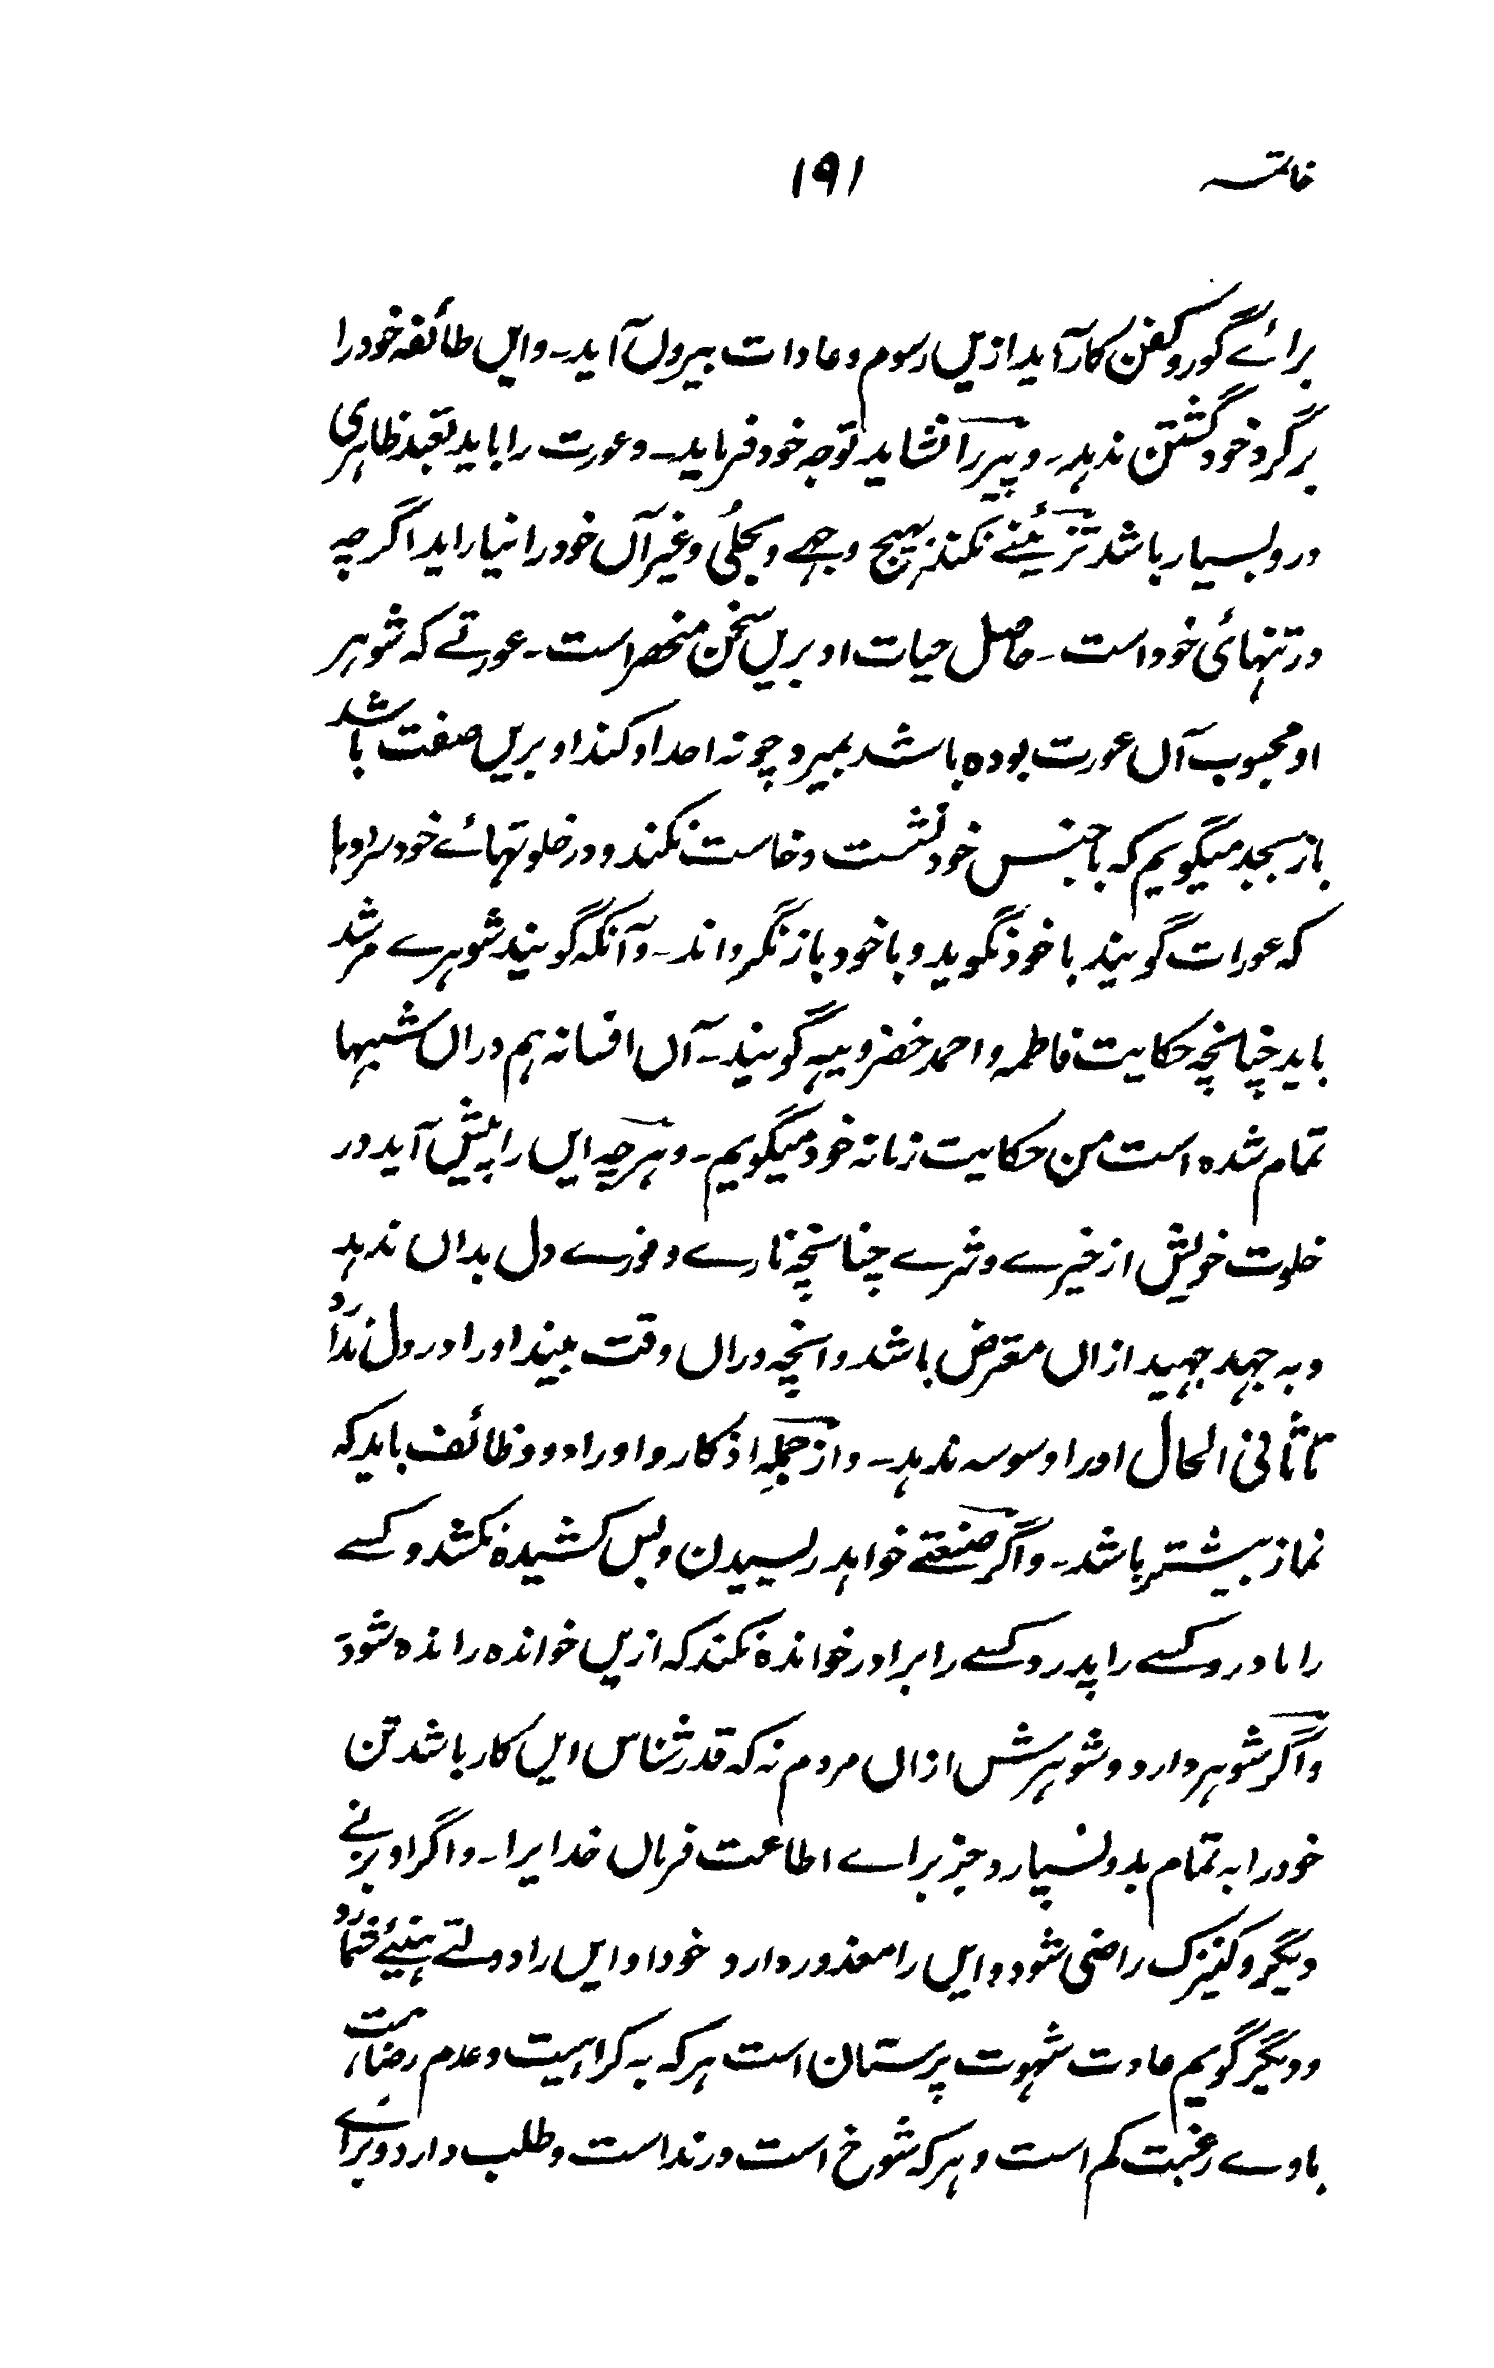 خاتمه ۱۹۱
برائے گور و کفن کار آید ازیں رسوم و عادات بیروں آید۔ وایں طائفہ خود را
بر گرد خود گشتن ندہد۔ و پیر را نشاید توجہ خود فرماید۔ و عورت را باید تعبد ظاہری
درو بسیار باشد تزئینے نکند بہیچ وجہے و بحلی و غیر آں خود را نیاراید اگرچہ
در تنہائی خود است۔ حاصل حیات او بریں سخن منحصر است۔ عورتے کہ شوہر
او محبوب آں عورت بودہ باشد بمیرد چونہ احداد کند او بریں صفت باشد
باز بجد میگویم کہ با جنس خود نشست و خاست نکند و در خلوتہائے خود سرودہا
کہ عورات گویند با خود نگوید و با خود باز نگرداند۔ و آنکہ گویند شوہرے مرشد
باید چنانچہ حکایت فاطمہ و احمد خضرویہ گویند۔ آں افسانہ ہم دراں شبہا
تمام شدہ است من حکایت زمانہ خود میگویم۔ و ہرچہ ایں را پیش آید در
خلوت خویش از خیرے و شرے چنانچہ نارے و نورے دل بداں ندہد
و بہ جہد جہید ازاں معرض باشد و انچہ دراں وقت بیند او را در دل ندارد
تا ثانی الحال او را وسوسہ ندہد۔ و از جملہ اذکار و اوراد و وظائف باید کہ
نماز بیشتر باشد۔ و اگر صنعتے خواہد ریسیدن و بس کشیدہ نکشد و کسے
را مادر و کسے را پدر و کسے را برادر خواندہ نکند کہ ازیں خواندہ راندہ شود
و اگر شوہر دارد و شوہرش ازاں مردم نہ کہ قدر شناس ایں کار باشد تن
خود را بہ تمام بدو نسپارد جز براے اطاعت فرماں خدایرا۔ و اگر او بزنے
دیگر و کنیزک راضی شود و ایں را معذور دارد خود او ایں را دولتے ہنیئے شمارد
و دیگر گویم عادت شہوت پرستان است ہر کہ بہ کراہیت و عدم رضاست
باوے رغبت کم است و ہر کہ شوخ است و رند است و طلب دارد و برائے